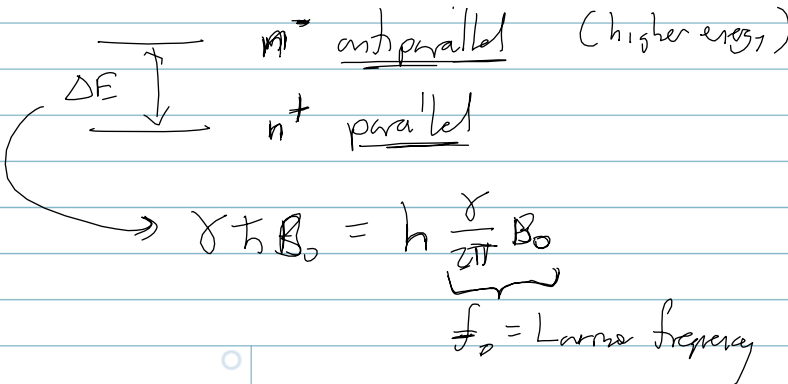 n⁻ antiparallel (higher energy)
ΔE
n⁺ parallel
γ ħ B₀ = h γ/2π B₀
f₀ = Larmor frequency